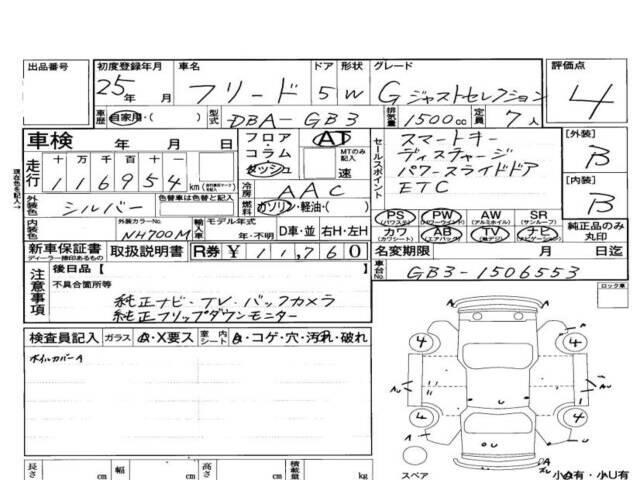 出品番号 初度登録年月 車名 ドア 形状 グレード 評価点
25年 月 フリード 5 W G ジャストセレクション 4
車歴 自家用・( ) 型式 DBA-GB3 排気量 1500cc 定員 7人
車検 年 月 日 フロア・コラム・ダッシュ AT MTのみ記入 速
セールスポイント スマートキー
ディスチャージ
パワースライドドア
ETC
[外装] B
[内装] B
現在色を記入→
走行 十 万 千 百 十 一
116954 km
冷房 AAC
外装色 シルバー 色替車は色替と記入 燃料 ガソリン・軽油・( )
PS (パワステ) PW (パワーウインド) AW (アルミホイル) SR (サンルーフ)
カワ (カワシート) AB (エアバック) TV (テレビ) ナビ (ナビゲーション)
純正品のみ丸印
内装色 外装カラーNo. NH700M 輸入車 モデル年式 年・不明 D車・並 右H・左H
新車保証書 ディーラー捺印あるもの 取扱説明書 R券 ¥11,760 名変期限 月 日迄
注意事項 後日品【 】
車台No. GB3-1506553
不具合箇所等
ロック車
純正ナビ・TV・バックカメラ
純正フリップダウンモニター
検査員記入 ガラス A・X要ス 室内シート A・コゲ・穴・汚れ・破れ
ホイルカバーA
4 4
4 4
AU
U U
A
スペア 小A有・小U有
長さ cm 幅 cm 高さ cm 積載量 kg